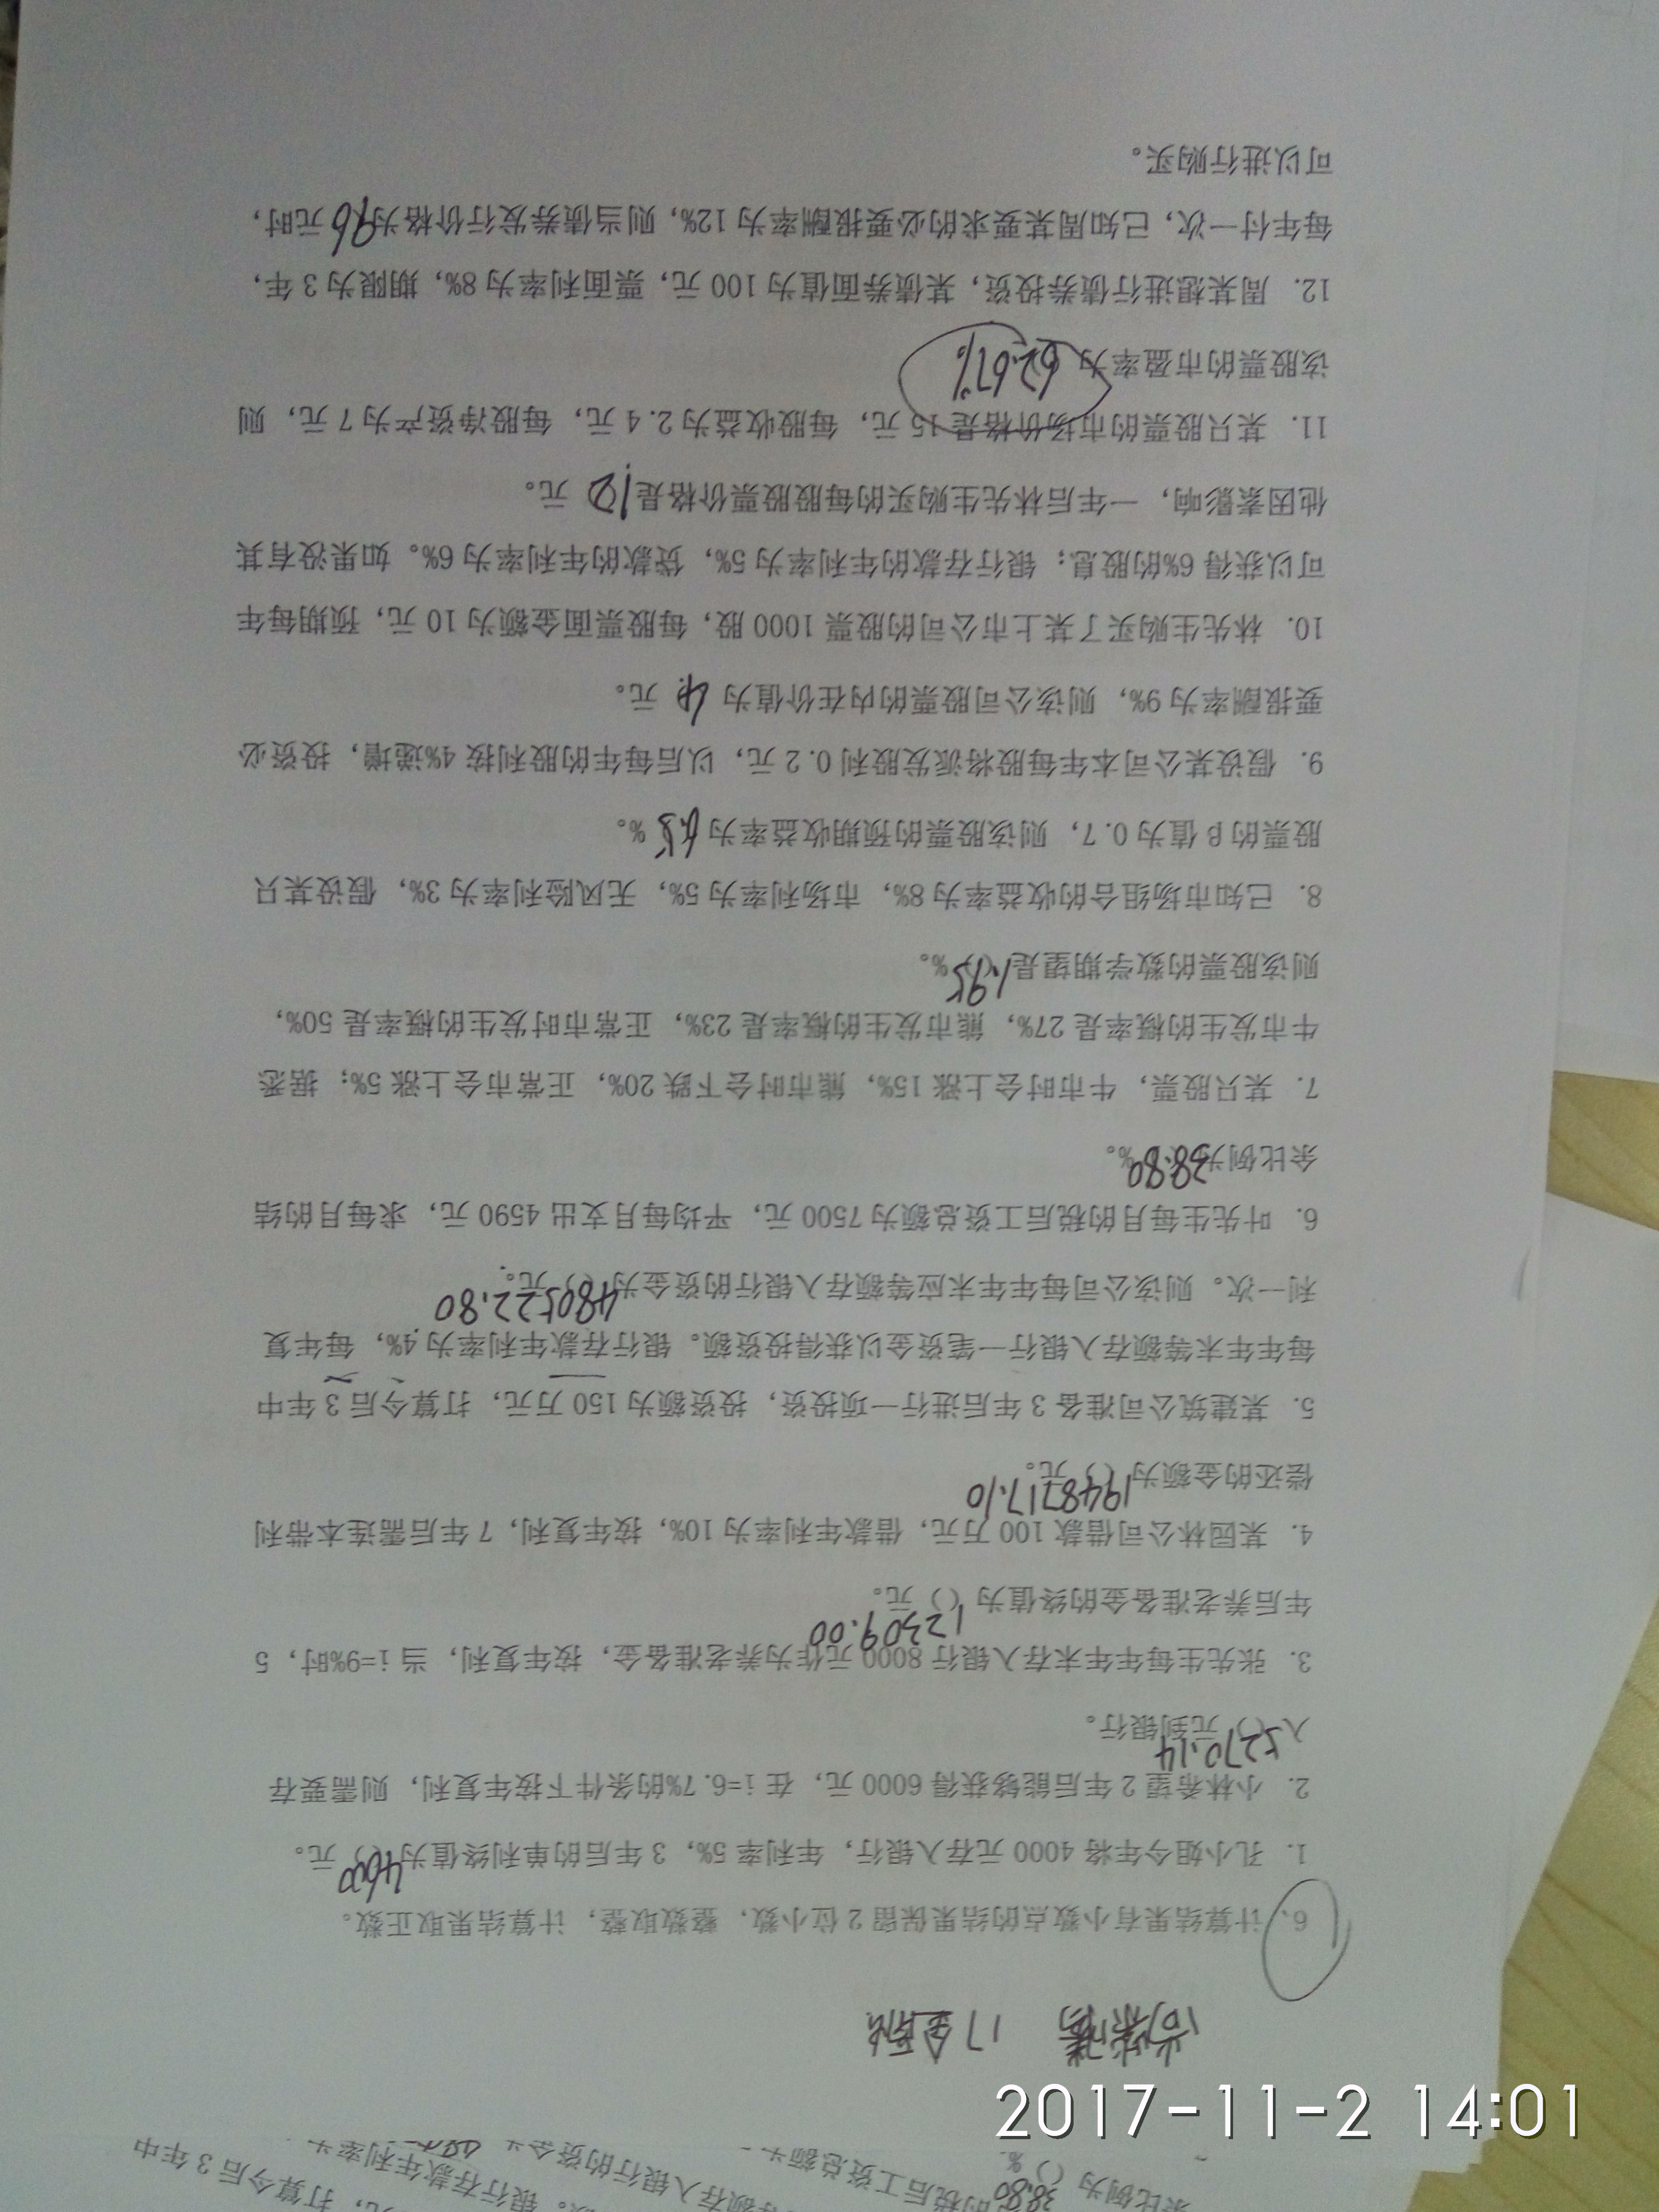 6、计算结果有小数点的结果保留2位小数，整数取整，计算结果取正数。
1. 孔小姐今年将4000元存入银行，年利率5%，3年后的单利终值为()元。
4600
2. 小林希望2年后能够获得6000元，在i=6.7%的条件下按年复利，则需要存
入()元到银行。
5270.14
3. 张先生每年年末存入银行8000元作为养老准备金，按年复利，当i=9%时，5
年后养老准备金的终值为()元。
12309.00
4. 某园林公司借款100万元，借款年利率为10%，按年复利，7年后需连本带利
偿还的金额为()元。
1948717.10
5. 某建筑公司准备3年后进行一项投资，投资额为150万元，打算今后3年中
每年年末等额存入银行一笔资金以获得投资额。银行存款年利率为4%，每年复
利一次。则该公司每年年末应等额存入银行的资金为()元。
480522.80
6. 叶先生每月的税后工资总额为7500元，平均每月支出4590元，求每月的结
余比例为38.80%。
7. 某只股票，牛市时会上涨15%，熊市时会下跌20%，正常市会上涨5%；据悉
牛市发生的概率是27%，熊市发生的概率是23%，正常市时发生的概率是50%，
则该股票的数学期望是()%。
1.95
8. 已知市场组合的收益率为8%，市场利率为5%，无风险利率为3%，假设某只
股票的β值为0.7，则该股票的预期收益率为6.5%。
9. 假设某公司本年每股将派发股利0.2元，以后每年的股利按4%递增，投资必
要报酬率为9%，则该公司股票的内在价值为4元。
10. 林先生购买了某上市公司的股票1000股，每股票面金额为10元，预期每年
可以获得6%的股息；银行存款的年利率为5%，贷款的年利率为6%。如果没有其
他因素影响，一年后林先生购买的每股股票价格是12元。
11. 某只股票的市场价格是15元，每股收益为2.4元，每股净资产为7元，则
该股票的市盈率为62.67%
12. 周某想进行债券投资，某债券面值为100元，票面利率为8%，期限为3年，
每年付一次，已知周某要求的必要报酬率为12%，则当债券发行价格为96元时，
可以进行购买。
2017-11-2 14:01